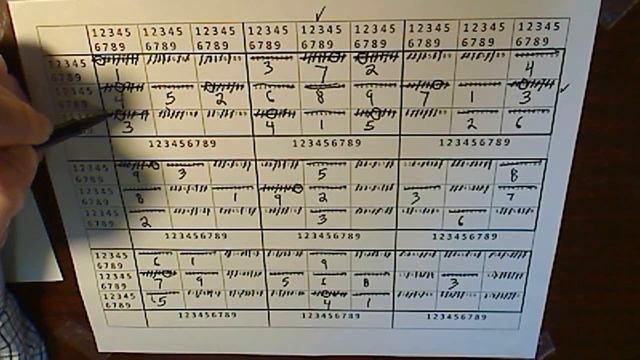 12345 12345 12345 12345 12345 12345 12345 12345 12345
6789 6789 6789 6789 6789 6789 6789 6789 6789
12345
6789 1 3 7 2 4
12345
6789 4 5 2 6 8 9 7 1 3
3 4 1 5 2 6
123456789 123456789 123456789
12345
6789 9 3 5 8
12345
6789 8 1 9 2 3 7
12345
6789 2 3 6
123456789 123456789 123456789
12345
6789 6 1 9
12345
6789 7 9 5 8 3
12345
6789 5 4 1
123456789 123456789 123456789